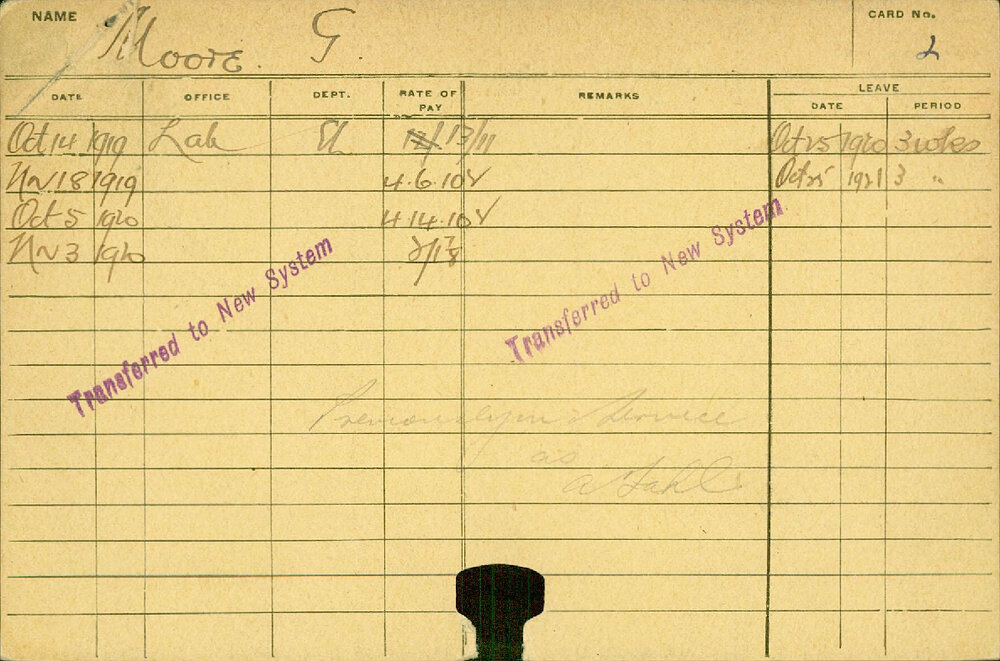 NAME Moore. G. CARD No. 2
DATE OFFICE DEPT. RATE OF PAY REMARKS LEAVE DATE PERIOD
Oct 14 1919 Lab El 13/11 Oct 25 1920 3 wks
Nov 18 1919 4.6.10 Oct 25 1921 3 "
Oct 5 1920 4.14.10
Nov 3 1920
Transferred to New System
Transferred to New System
Previously in Service
as
a Stahl